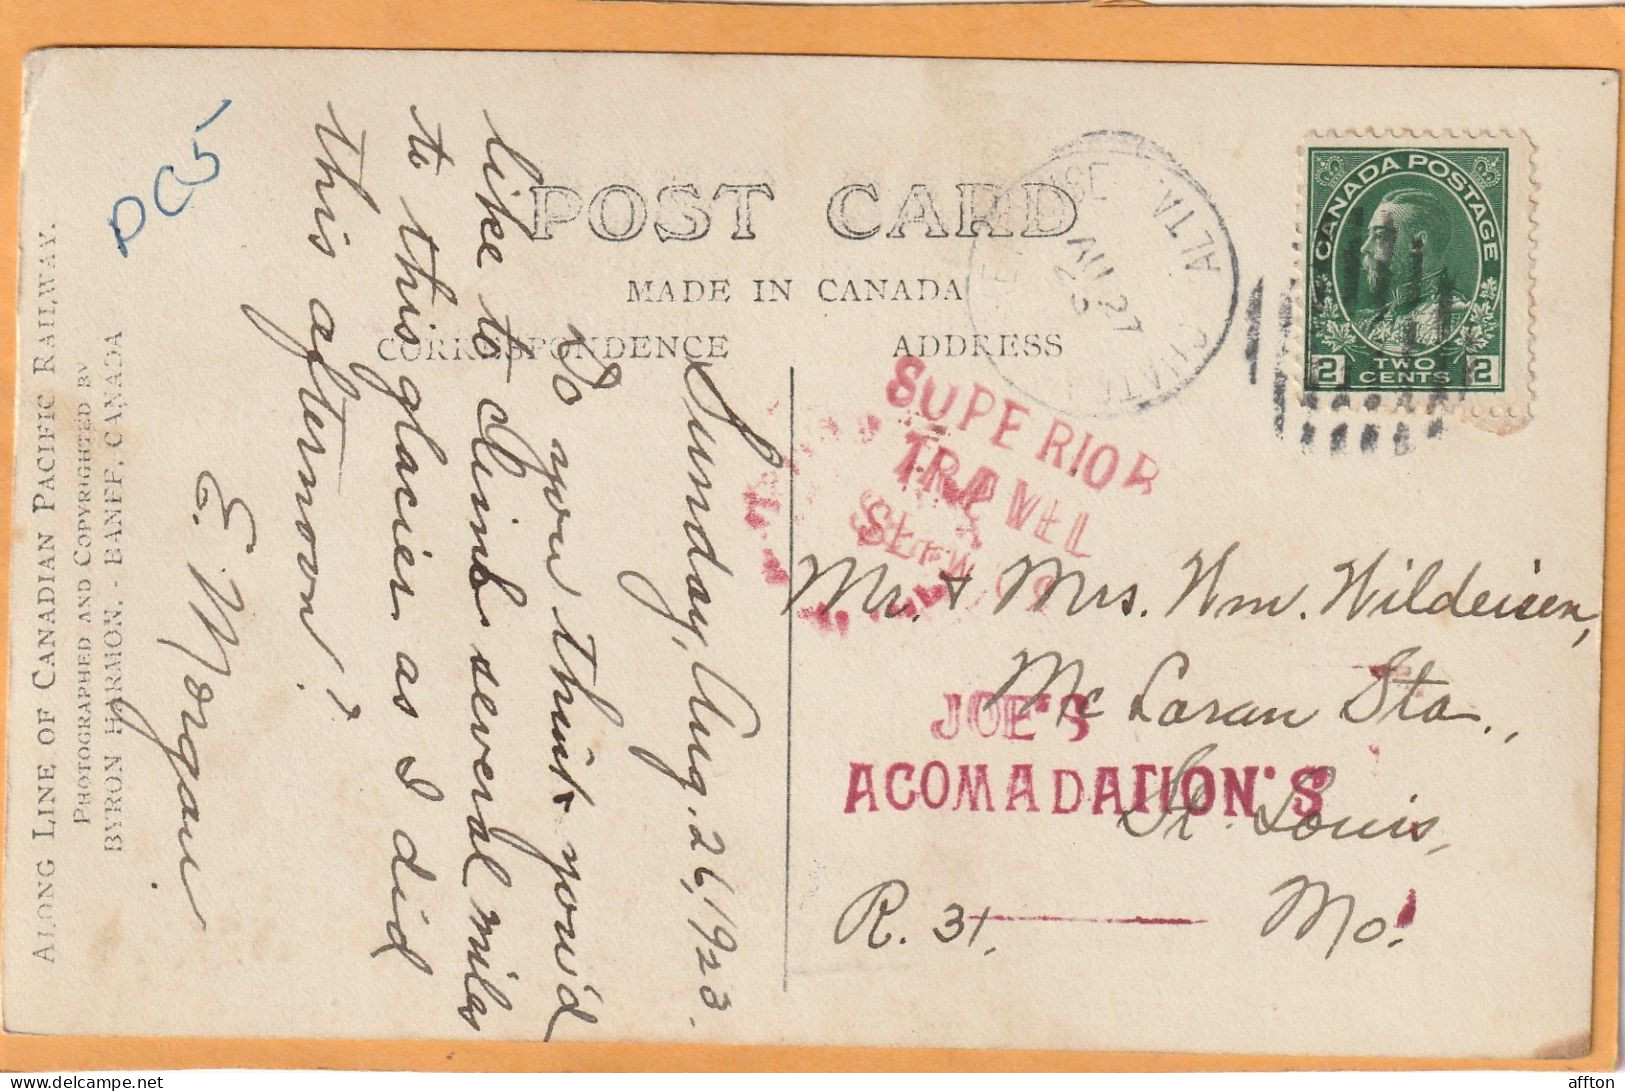 PC5
ALONG LINE OF CANADIAN PACIFIC RAILWAY.
PHOTOGRAPHED AND COPYRIGHTED BY
BYRON HARMON. - BANFF, CANADA
POST CARD
MADE IN CANADA
CORRESPONDENCE
ADDRESS
Sunday, Aug. 26, 1923.
Do you think you'd
like to climb several miles
to this glacier as I did
this afternoon?
E. Morgan
ALTA
AU 27
CANADA POSTAGE
2 TWO CENTS 2
SUPERIOR
TRAVEL
Mr. & Mrs. Wm. Wildeisen,
Mc Laran Sta.,
St. Louis,
R. 31. Mo.
JOE'S
ACOMADATION'S
affton